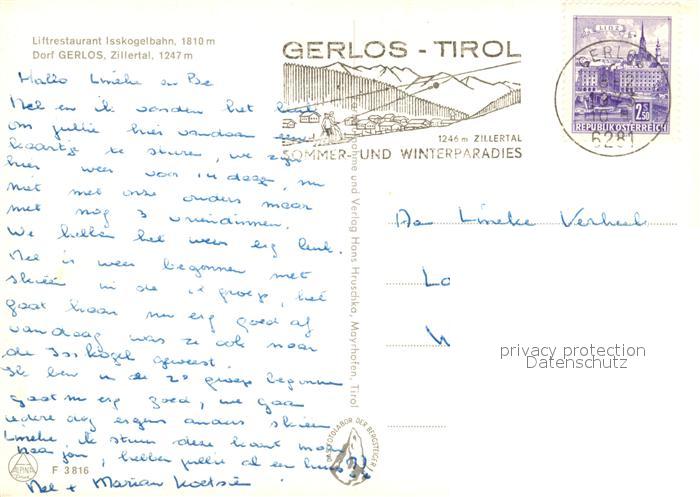 Liftrestaurant Isskogelbahn, 1810 m
Dorf GERLOS, Zillertal, 1247 m
Hallo Lineke en Be
Nel en ik vonden het
om jullie hier vandaan een
kaartje te sturen, we zijn
hier weer voor 14 dagen, nu
niet met onze ouders maar
met nog 3 vriendinnen.
We hebben het weer erg leuk.
Nel is weer begonnen met
skieën in de groep, het
gaat haar nu erg goed af
vandaag was ze ook naar
de Isskogel geweest.
Ik ben in de 2e groep begonnen
gaat m erg goed, we gaan
iedere dag ergens anders skieën
Lineke, ik stuur deze kaart maar
naar jou, hebben jullie al een huis?
Nel + Marian
ALPINA
F 3816
Aufnahme und Verlag Hans Hruschka, Mayrhofen, Tirol
FOTOLABOR DER BERGSTEIGER
GERLOS - TIROL
1246 m ZILLERTAL
SOMMER- UND WINTERPARADIES
GERLOS
6281
LINZ
2.50
REPUBLIK ÖSTERREICH
Aan Lineke
Lo
privacy protection
Datenschutz